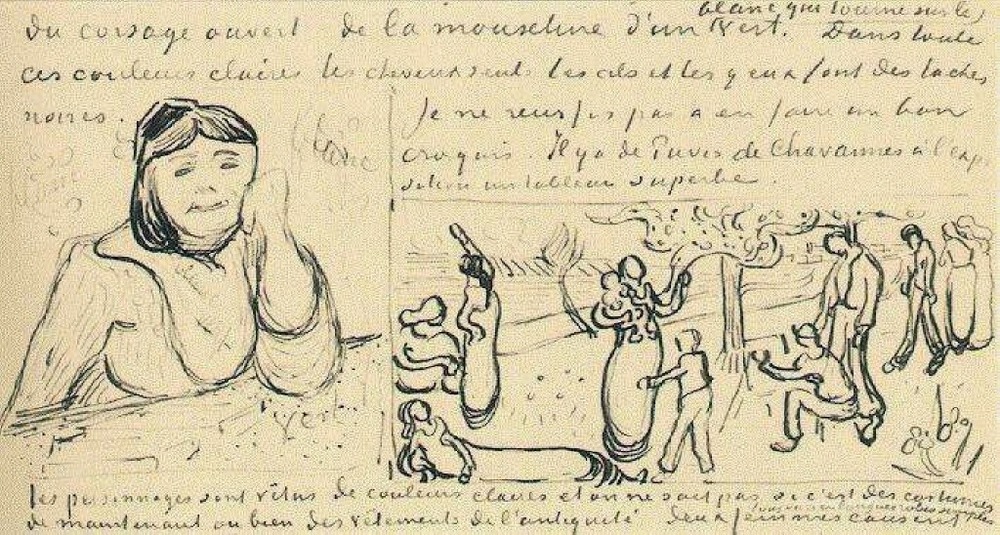 blanc qui tourne sur le
du corsage ouvert de la mousseline d'un vert. Dans toute
ces couleurs claires les cheveux seuls les cils et les yeux font des taches
noires.
Je ne reussis pas a en faire un bon
croquis. Il y a de Puvis de Chavannes à l'exp
osition un tableau superbe.
blanc
Vert
les personnages sont vêtus de couleurs claires et on ne sait pas si c'est des costumes
de maintenant ou bien des vêtements de l'antiquité deux femmes causent